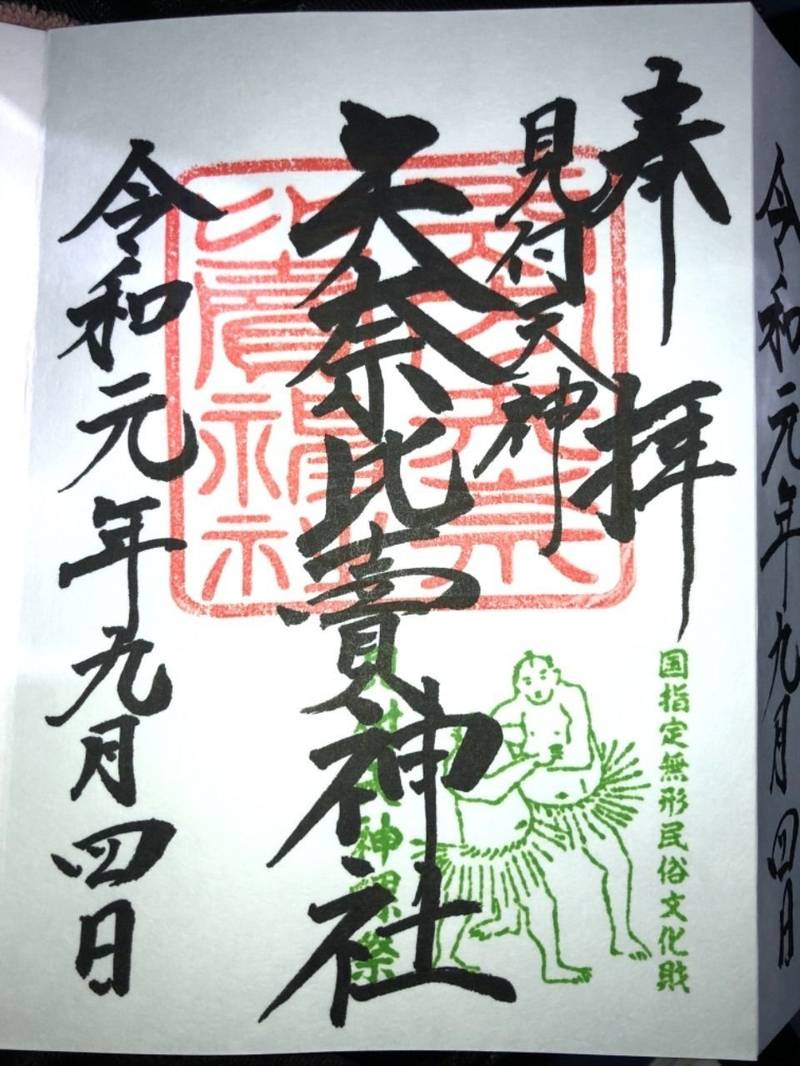 奉拝
見付天神
矢奈比賣神社
令和元年九月四日
国指定無形民俗文化財
神裸祭
令和元年九月四日